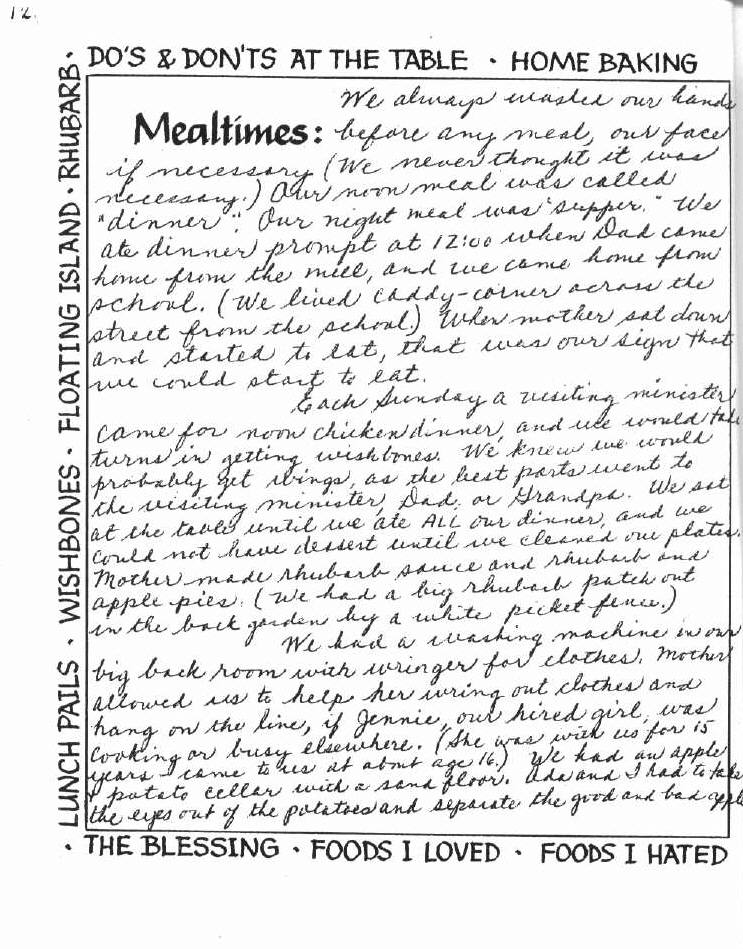 12.
DO'S & DON'TS AT THE TABLE · HOME BAKING
LUNCH PAILS · WISHBONES · FLOATING ISLAND · RHUBARB ·
We always washed our hands
Mealtimes: before any meal, our face
if necessary (We never thought it was
necessary.) Our noon meal was called
"dinner". Our night meal was "supper." We
ate dinner prompt at 12:00 when Dad came
home from the mill, and we came home from
school. (We lived caddy-corner across the
street from the school.) When mother sat down
and started to eat, that was our sign that
we could start to eat.
Each Sunday a visiting minister
came for noon chicken dinner, and we would take
turns in getting wishbones. We knew we would
probably get wings, as the best parts went to
the visiting minister, Dad, or Grandpa. We sat
at the table until we ate ALL our dinner, and we
could not have dessert until we cleaned our plates.
Mother made rhubarb sauce and rhubarb and
apple pies. (We had a big rhubarb patch out
in the back garden by a white picket fence.)
We had a washing machine in our
big back room with wringer for clothes. Mother
allowed us to help her wring out clothes and
hang on the line, if Jennie, our hired girl, was
cooking or busy elsewhere. (She was with us for 15
years - came to us at about age 16.) We had an apple
& potato cellar with a sand floor. Ada and I had to take
the eyes out of the potatoes and separate the good and bad apple
· THE BLESSING · FOODS I LOVED · FOODS I HATED